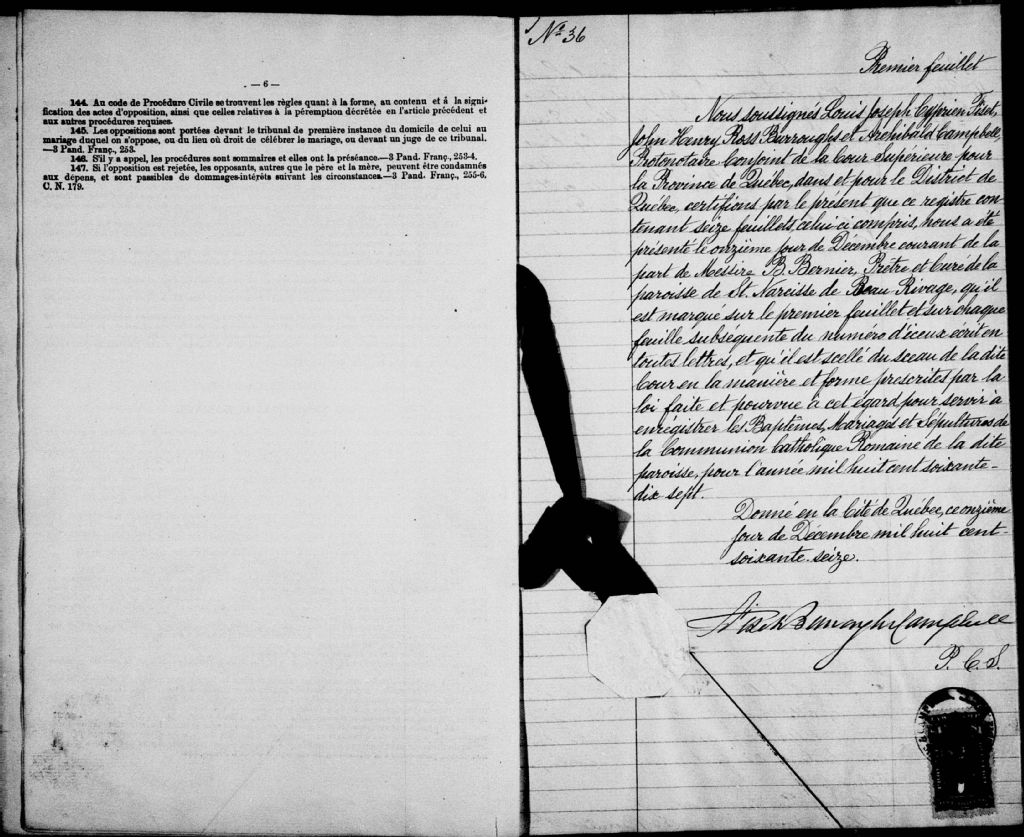 — 6 —
144. Au code de Procédure Civile se trouvent les règles quant à la forme, au contenu et à la signi-
fication des actes d'opposition, ainsi que celles relatives à la péremption décrétée en l'article précédent et
aux autres procédures requises.
145. Les oppositions sont portées devant le tribunal de première instance du domicile de celui au
mariage duquel on s'oppose, ou du lieu où droit de célébrer le mariage, ou devant un juge de ce tribunal.
—3 Pand. Franç., 253.
146. S'il y a appel, les procédures sont sommaires et elles ont la préséance.—3 Pand. Franç., 253-4.
147. Si l'opposition est rejetée, les opposants, autres que le père et la mère, peuvent être condamnés
aux dépens, et sont passibles de dommages-intérêts suivant les circonstances.—3 Pand. Franç., 255-6.
C. N. 179.
No 36
Premier feuillet
Nous soussignés Louis Joseph Cyprien Fiset,
John Henry Ross Burroughs et Archibald Campbell,
Protonotaire Conjoint de la Cour Supérieure pour
la Province de Québec, dans et pour le District de
Québec, certifions par le présent que ce registre con-
tenant seize feuillets, celui ci compris, nous a été
présenté le onzième jour de Décembre courant de la
part de Messire B. Bernier, Prêtre et Curé de la
paroisse de St. Narcisse de Beau Rivage, qu'il
est marque sur le premier feuillet et sur chaque
feuille subséquente du numéro d'iceux écrit en
toutes lettres, et qu'il est scellé du sceau de la dite
Cour en la manière et forme prescrites par la
loi faite et pourvue à cet égard, pour servir à
enrégistrer les Baptêmes, Mariages et Sépultures de
la Communion Catholique Romaine de la dite
paroisse, pour l'année mil huit cent soixante-
dix sept.
Donné en la Cité de Québec, ce onzième
jour de Décembre mil huit cent
soixante-seize.
Fiset Burroughs Campbell
P. C. S.